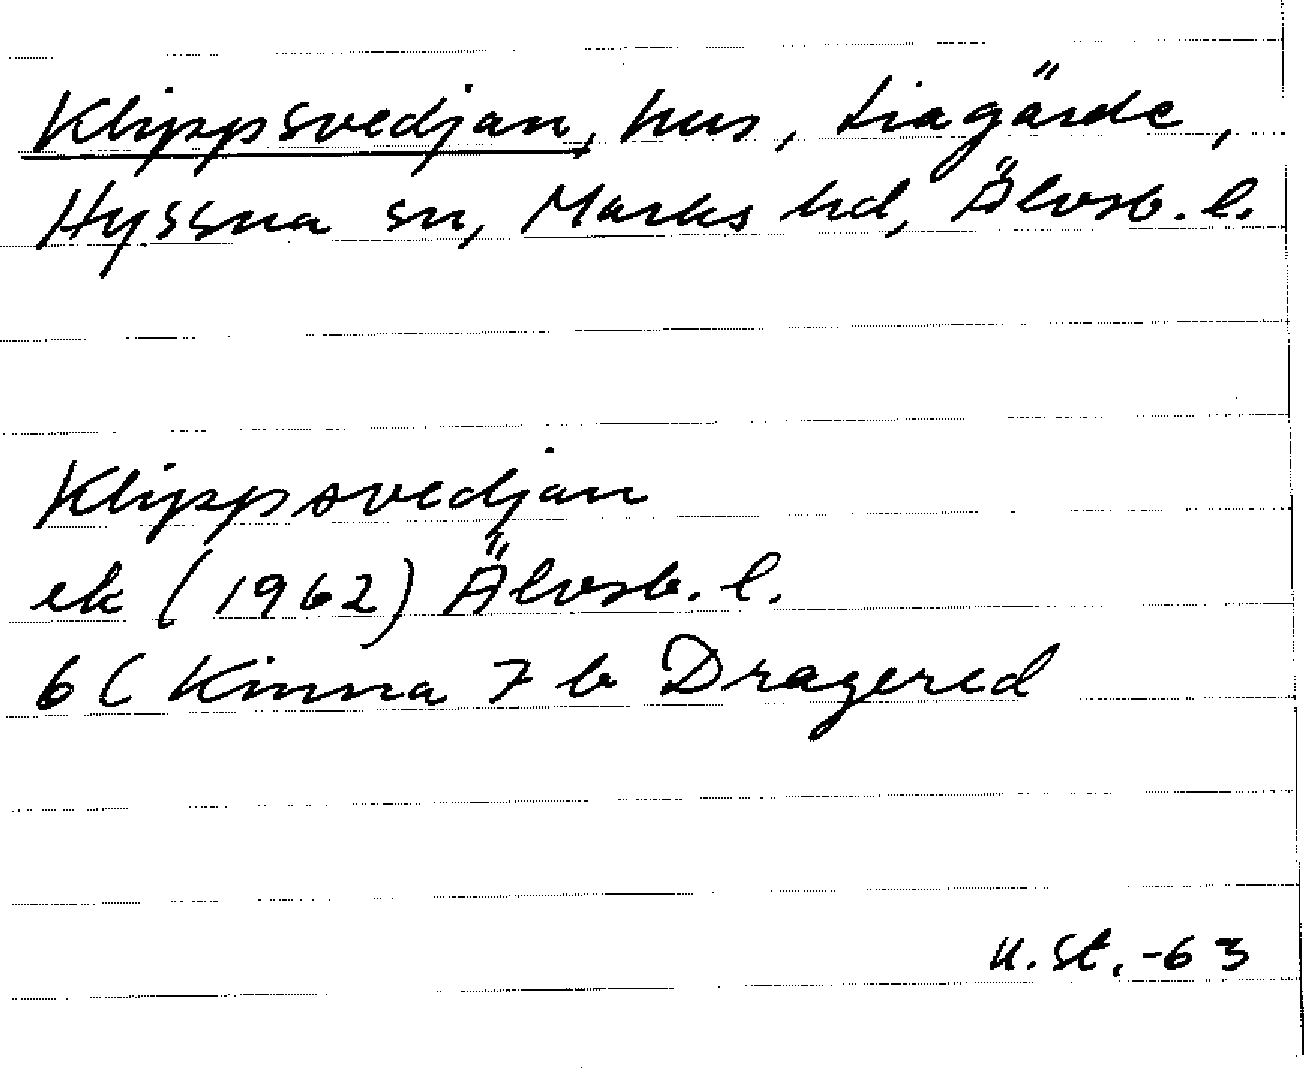 Klippsvedjan, hus, Liagärde,
Hyssna sn, Marks hd, Älvsb. l.
Klippsvedjan
ek (1962) Älvsb. l.
6C Kinna 7 b Dragered
U. St. -63